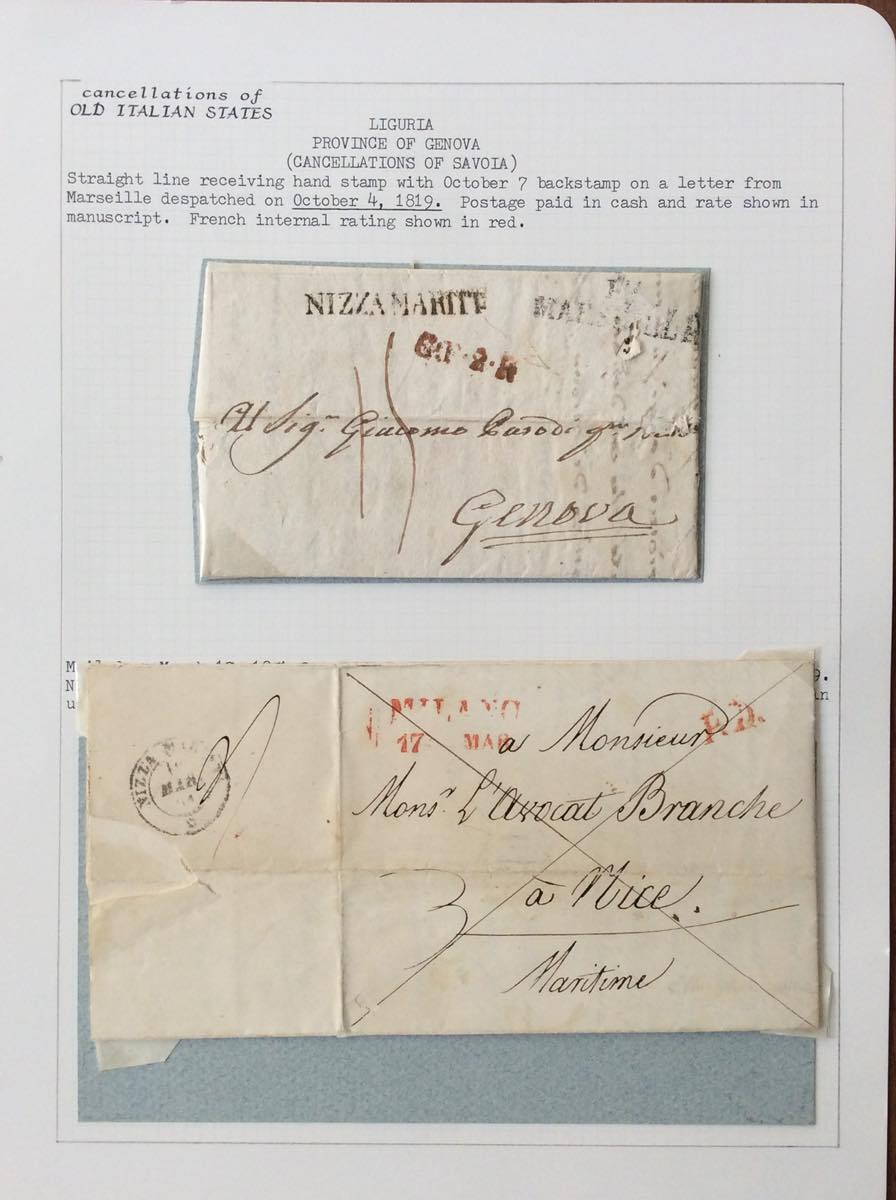 cancellations of
OLD ITALIAN STATES
LIGURIA
PROVINCE OF GENOVA
(CANCELLATIONS OF SAVOIA)
Straight line receiving hand stamp with October 7 backstamp on a letter from
Marseille despatched on October 4, 1819. Postage paid in cash and rate shown in
manuscript. French internal rating shown in red.
NIZZA MARITT
2·R
15
Al Sigr. Giacomo
Genova
MILANO
17 MAR
P.D.
a Monsieur
Monsr. L'Avocat Branche
à Nice.
Maritime
3
NIZZA
MAR